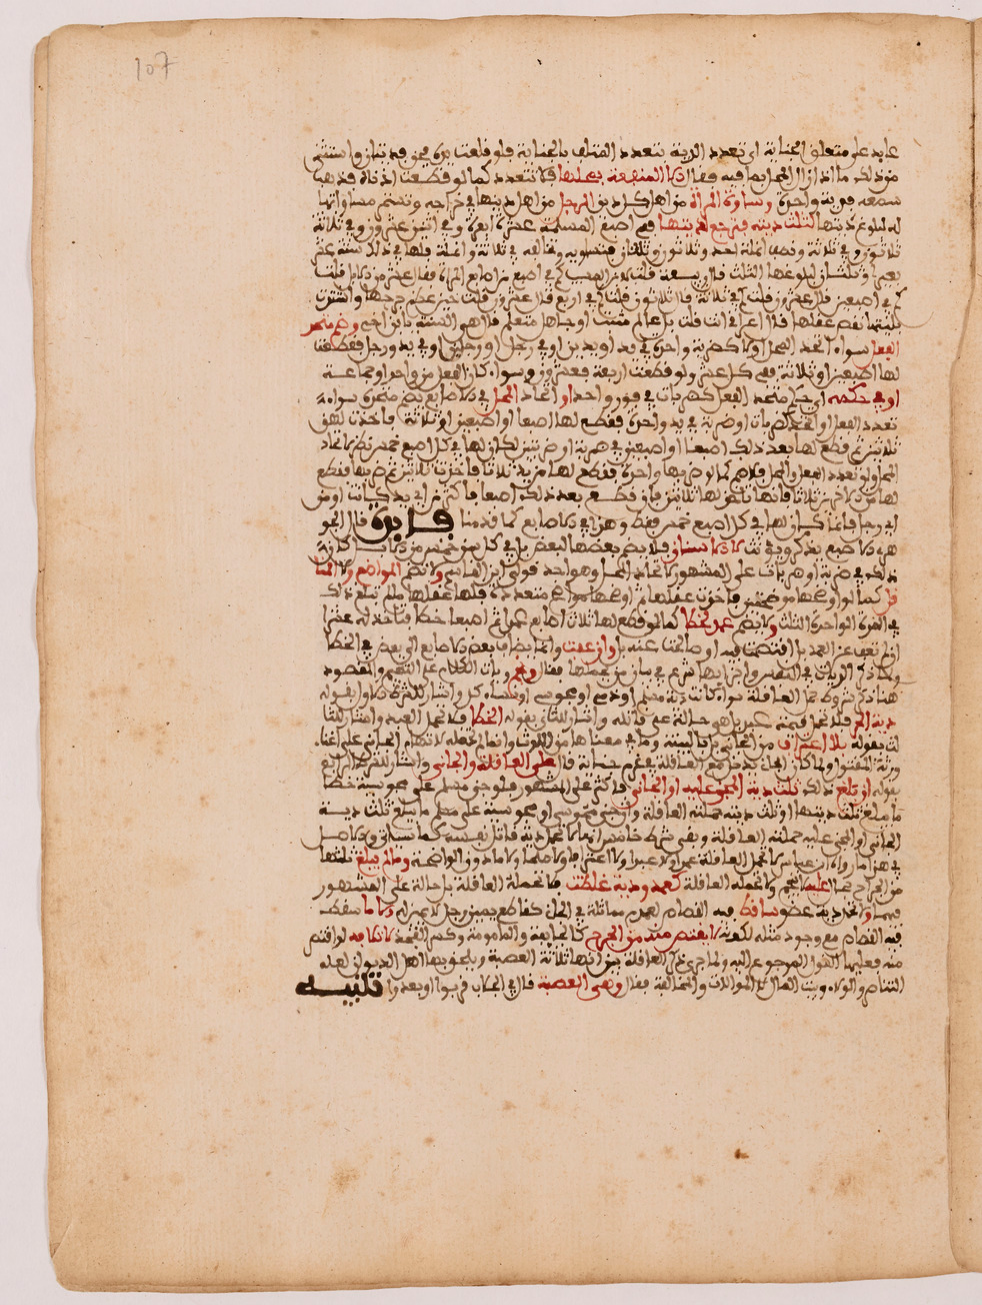 107
عايد على متعلق الجناية اي تعدد الدية بتعدد المتلف بالجناية فلو قلعت يده فجن فديتان واستثنى
من ذلك ما اذا زال المحل بما فيه فقال الا المنفعة بمحلها فلا تتعدد كما لو قطعت اذناه فذهب
سمعه فدية واحدة وساوت المرأة من اهل كل دين الرجل من اهل دينها في جراحه وتستمر مساواتها
له لبلوغ ديتها لثلث ديته فترجع لديتها ففي اصبع المسلمة عشرة ابعرة وفي اثنين عشرون وفي ثلاثة
ثلاثون وفي ثلاثة ونصف انملة احد وثلاثون وثلثان فتستويه وتخالفه في ثلاثة وانملة فلها في ذلك ستة عشر
بعيرا وثلثان لبلوغها الثلث قال ربيعة قلت لابن المسيب كم في اصبع من اصابع المرأة فقال عشر من الابل قلت
كم في اصبعين قال عشرون قلت كم في ثلاثة قال ثلاثون قلت كم في اربع قال عشرون قلت حين عظم جرحها واشتدت
بليتها نقص عقلها قال اعراقي انت قلت بل عالم متثبت او جاهل متعلم قال هي السنة يا ابن اخي وضم متحد
الفعل سواء اتحد المحل او لا كضربة واحدة في يد او يدين او في رجل او رجلين او في يد ورجل فقطعتا
لها اصبعين او ثلاثة ففي كل عشر ولو قطعت اربعة فعشرون وسواء كان الفعل من واحد او جماعة
او في حكمه اي حكم متحد الفعل كضربات في فور واحد او اتحاد المحل في الاصابع فتضم متحدة سواء
تعدد الفعل او اتحد كضربات او ضربة في يد واحدة فقطع لها اصبعا او اصبعين او ثلاثة فاخذت لهن
ثلاثين ثم قطع لها بعد ذلك اصبعا او اصبعين في ضربة او ضربتين لكان لها في كل اصبع خمس نظرا لاتحاد
المحل ولو تعدد الفعل والمحل فلا ضم كما لو ضربها واحدة فقطع لها من يد ثلاثا فاخذت ثلاثين ثم ضربها فقطع
لها من الاخرى ثلاثا فانها تاخذ لها ثلاثين فان قطع بعد ذلك اصبعا فاكثر من اي يد كانت او من
اي رجل فانما كان لها في كل اصبع خمس فقط وهذا في الاصابع كما قدمنا فايدة قال الجو
هري الاصبع يذكر ويونث لا الاسنان فلا يضم بعضها لبعض بل في كل سن خمس من الابل كانت
ذلك في ضربة او ضربات على المشهور لاتحاد المحل وهو احد قولي ابن القاسم ولا تضم المواضح والمنا
قل كما لو اوضحها موضحتين فاخذت عقلها ثم اوضحها مواضح متعددة فلها عقلها ما لم تبلغ ذلك
في المرة الواحدة الثلث ولا يضم عمد لخطا كما لو قطع لها ثلاث اصابع عمدا ثم اصبعا خطا فتاخذ له عشرا
ان لم تعف عن العمد بل اقتصت فيه او صالحت عنه بل وان عفت وانما يضاف بعض الاصابع الى بعض في الخطا
ولما ذكر الديات في النفس واجزايها شرع في بيان من يحملها فقال ونجمت
هنا ذكر شروط حمل العاقلة سواء كانت دية مسلم او ذمي او مجوسي او نساء كل واشار للشرط الاول بقوله
دية الحر فلا تحمل قيمة عبد بل هو حالة على قاتله واشار للثاني بقوله الخطا فلا تحمل العمد واشار للثا
لث بقوله بلا اعتراف من الجاني بل بالبينة وما في معناها من اللوث وانما لم تحمله لاتهام الجاني على اغناء
ورثة المقتول ولما كان الجاني يدخل مع العاقلة في غرم جناية قال على العاقلة والجاني واشار للشرط الرابع
بقوله ان بلغ ذلك ثلث دية المجني عليه او الجاني فاكثر على المشهور فلو جنى مسلم على مجوسية خطا
ما مبلغ ثلث ديتها او ثلث ديته حملته العاقلة وان جنى مجوسي او مجوسية على مسلم ما يبلغ ثلث دية
الجاني او المجني عليه حملته العاقلة وبقي شرط خامس انها لا تحمل دية قاتل نفسه كما سياتي والاصل
في هذا ما رواه ابن عباس لا تحمل العاقلة عمدا ولا عبدا ولا اعترافا ولا صلحا ولا ما دون الواضحة وما لم يبلغ ثلثها
من الجراح فحال عليه اي لم ولا تحمله العاقلة كعمد ودية غلظت فلا تحملها العاقلة بل حالة على المشهور
فيهما ولا تحمل دية عضو ساقط فيه القصاص لعدم مماثله في الجاني كقاطع يمين رجل لا يمين له والا ما سقط
فيه القصاص مع وجود مثله لكونه لا يقتص منه من الجرح كالجايفة والمامومة وكسر الفخذ لاتلافه لو اقتص
منه فعليها القول المرجوع اليه ولما جرى ذكر العاقلة بين انها ثلاثة العصبة ويلحق بها اهل الديوان لعلة
التناصر والولاء وبيت المال لا الموالات والمخالفة فقال وهي العصبة قال في الجلاب قربوا او بعدوا تنبيه